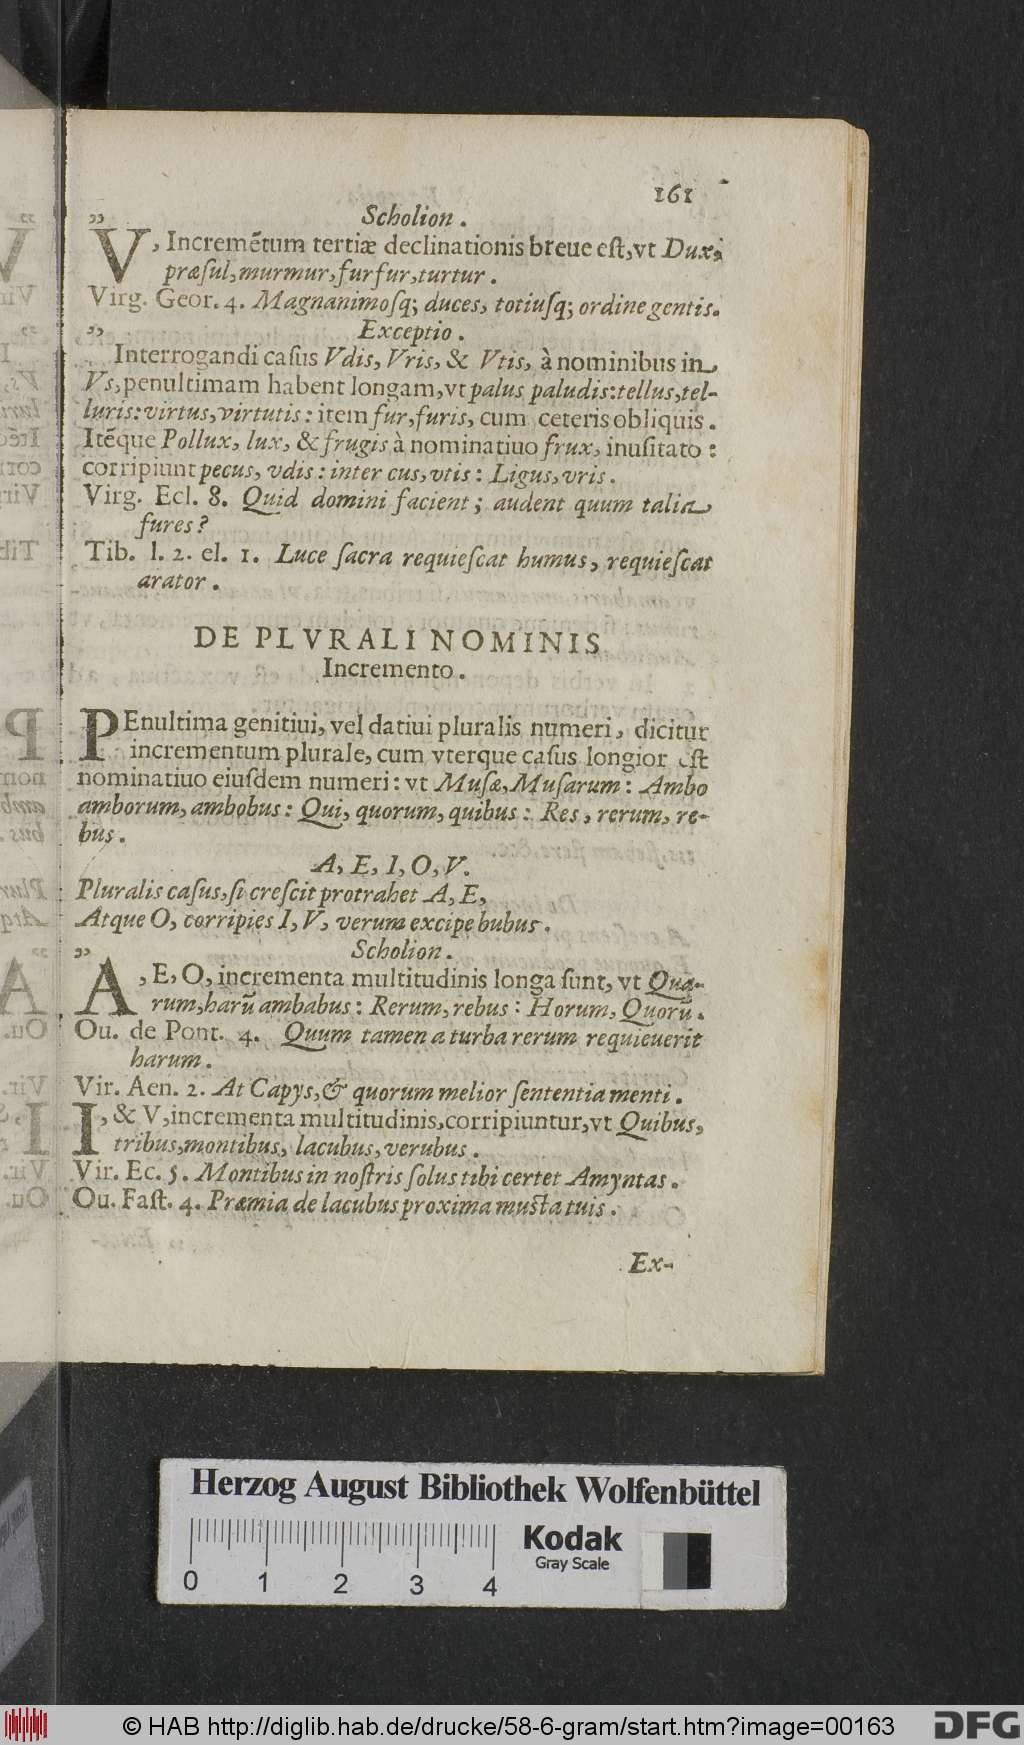 161
Scholion.
„
V, Incremẽtum tertiæ declinationis breue eſt, vt Dux,
præſul, murmur, furfur, turtur.
Virg. Geor. 4. Magnanimoſq; duces, totiuſq; ordine gentis.
„ Exceptio.
Interrogandi caſus Vdis, Vris, & Vtis, à nominibus in
Vs, penultimam habent longam, vt palus paludis: tellus, tel-
luris: virtus, virtutis: item fur, furis, cum ceteris obliquis.
Itẽque Pollux, lux, & frugis à nominatiuo frux, inuſitato:
corripiunt pecus, vdis: inter cus, vtis: Ligus, vris.
Virg. Ecl. 8. Quid domini facient; audent quum talia
fures?
Tib. l. 2. el. 1. Luce ſacra requieſcat humus, requieſcat
arator.
DE PLVRALI NOMINIS
Incremento.
PEnultima genitiui, vel datiui pluralis numeri, dicitur
incrementum plurale, cum vterque caſus longior eſt
nominatiuo eiuſdem numeri: vt Muſæ, Muſarum: Ambo
amborum, ambobus: Qui, quorum, quibus: Res, rerum, re-
bus.
A, E, I, O, V.
Pluralis caſus, ſi creſcit protrahet A, E,
Atque O, corripies I, V, verum excipe bubus.
„ Scholion.
A, E, O, incrementa multitudinis longa ſunt, vt Qua-
rum, harũ ambabus: Rerum, rebus: Horum, Quorũ.
Ou. de Pont. 4. Quum tamen a turba rerum requieuerit
harum.
Vir. Aen. 2. At Capys, & quorum melior ſententia menti.
I, & V, incrementa multitudinis, corripiuntur, vt Quibus,
tribus, montibus, lacubus, verubus.
Vir. Ec. 5. Montibus in noſtris ſolus tibi certet Amyntas.
Ou. Faſt. 4. Præmia de lacubus proxima muſta tuis.
Ex-
Herzog August Bibliothek Wolfenbüttel
Kodak
Gray Scale
0 1 2 3 4
© HAB http://diglib.hab.de/drucke/58-6-gram/start.htm?image=00163
DFG